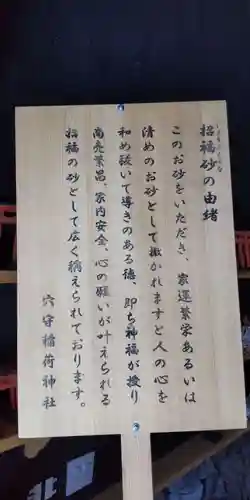 招福砂の由緒
このお砂をいただき、家運繁栄あるいは
清めのお砂として撒かれますと人の心を
和め授いて導きのある徳、即ち神福が授り
商売繁昌、家内安全、心の願いが叶えられる
招福の砂として広く称えられております。
穴守稲荷神社